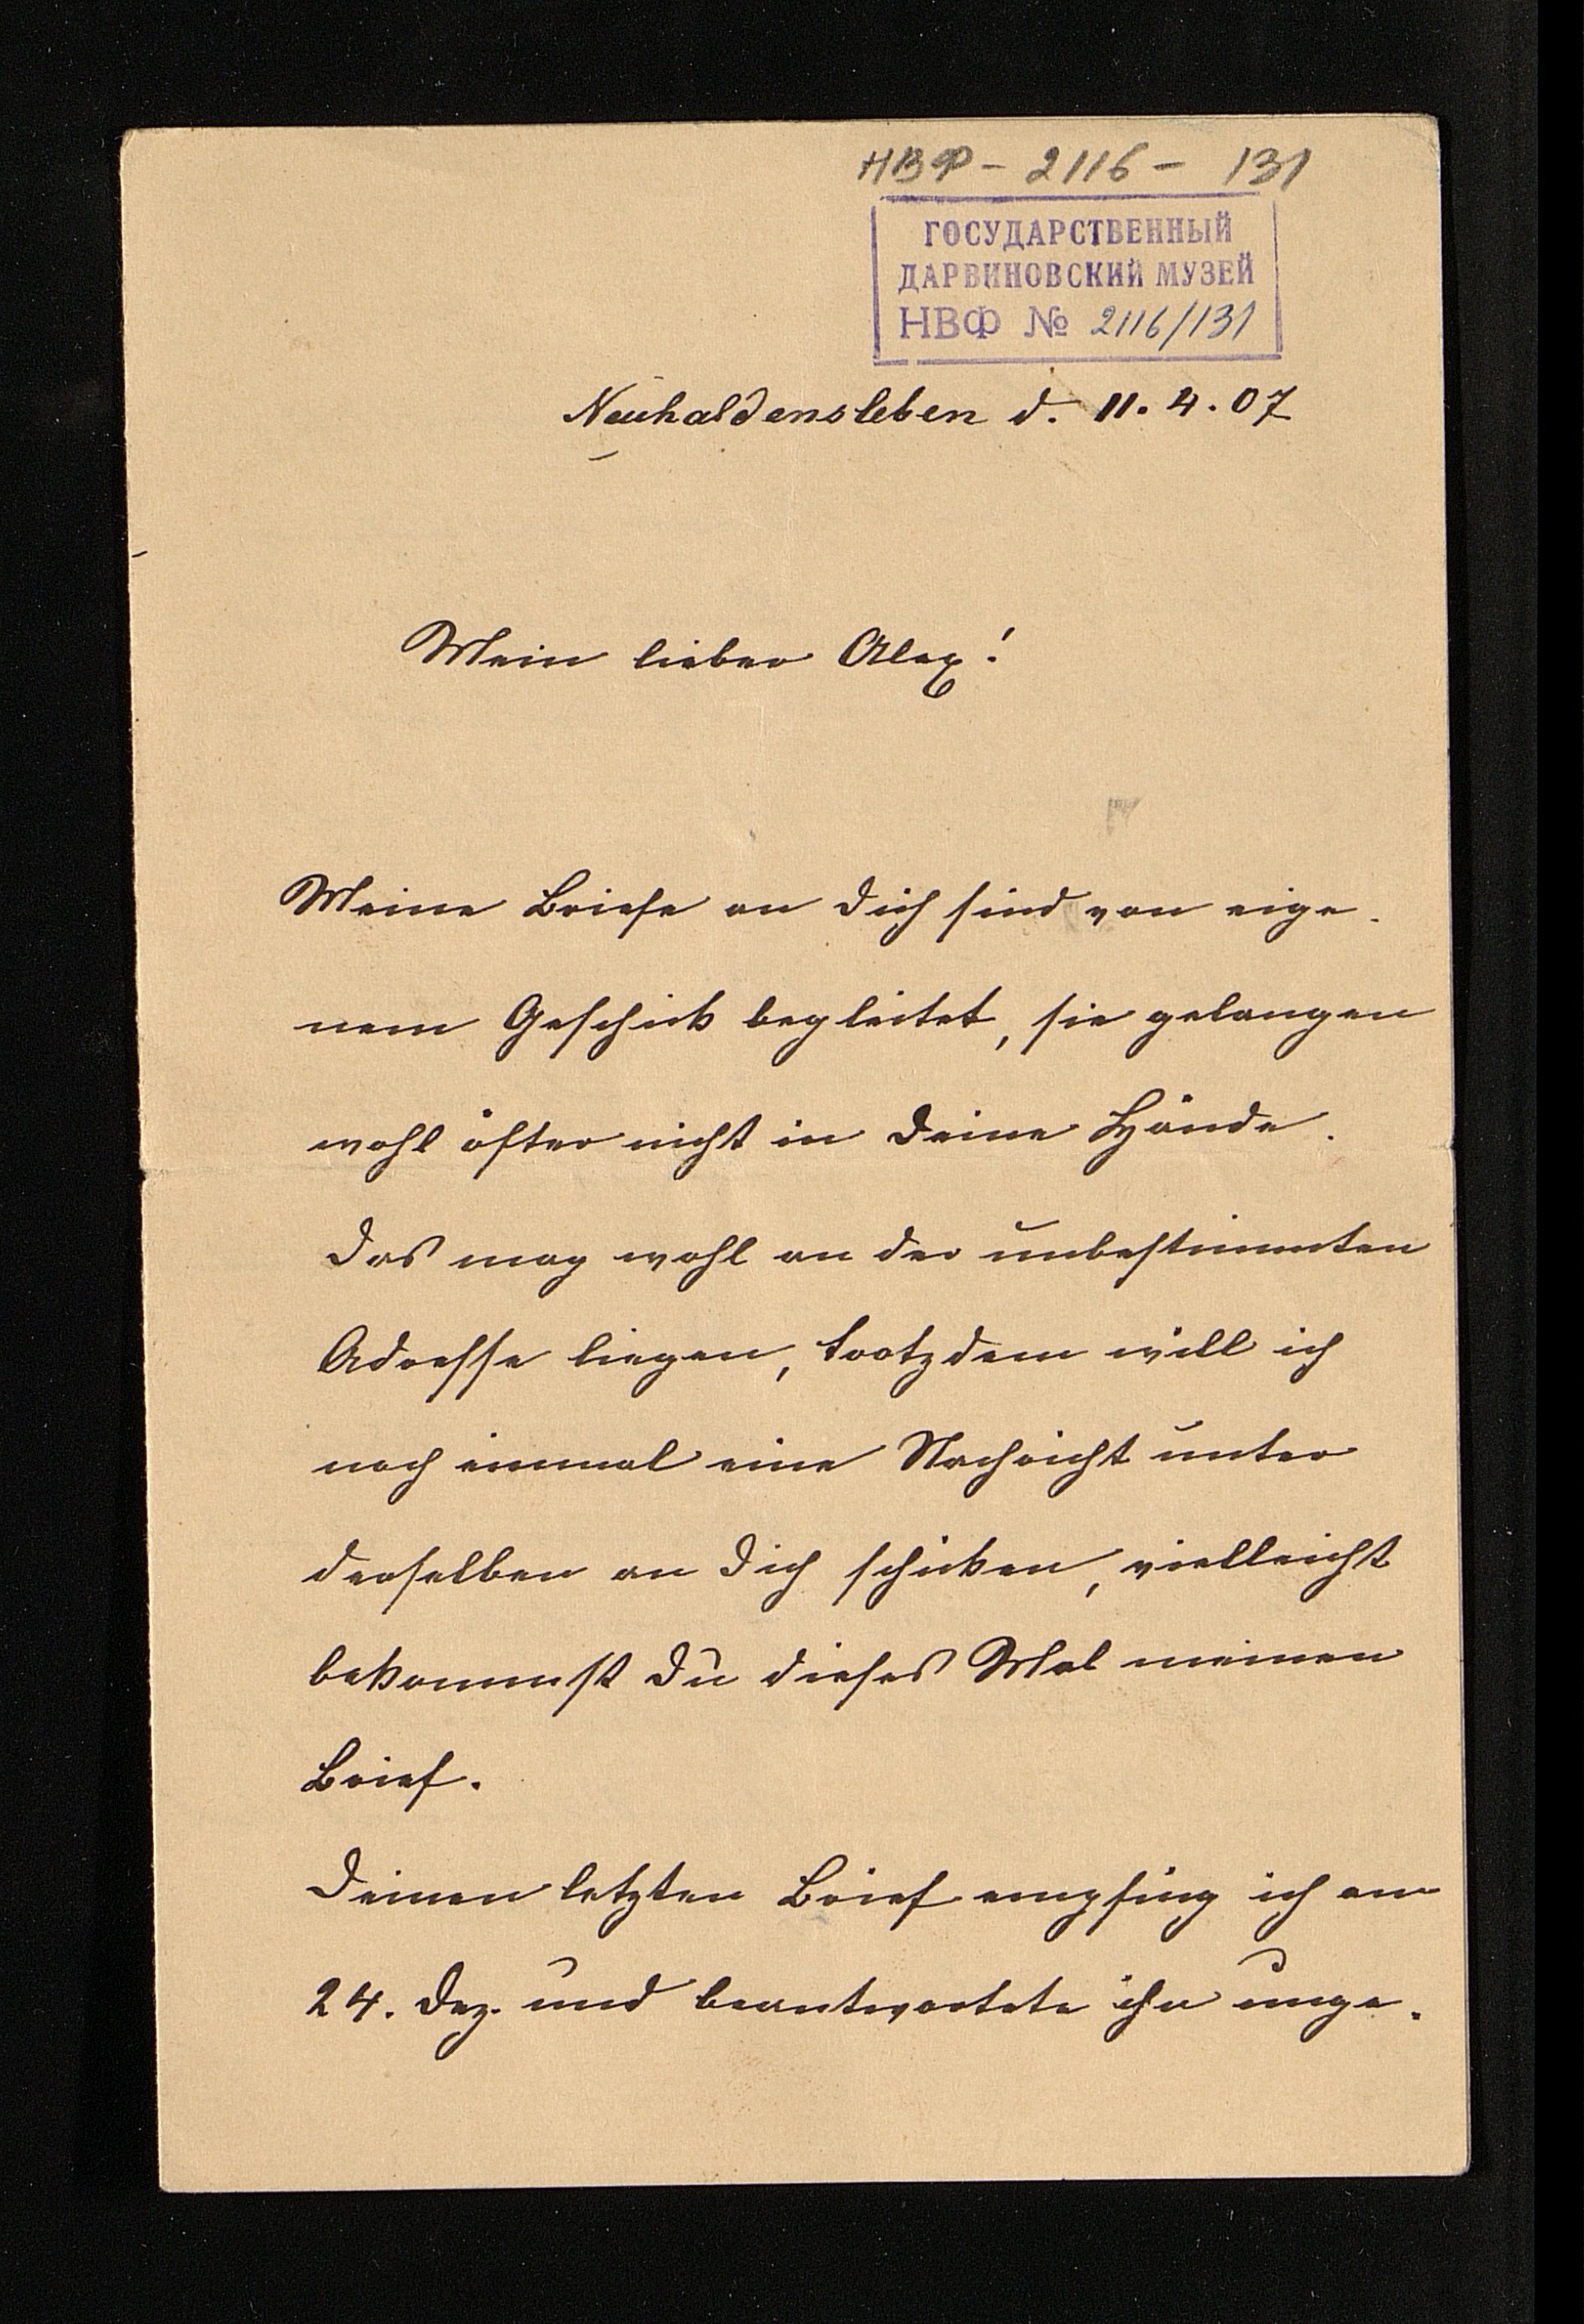 НВФ - 2116 - 131
ГОСУДАРСТВЕННЫЙ
ДАРВИНОВСКИЙ МУЗЕЙ
НВФ № 2116/131
Neuhaldensleben d. 11.4.07
Mein lieber Alex!
Meine Briefe an Dich sind von eige-
nem Geschick begleitet, sie gelangen
wohl öfter nicht in Deine Hände.
Das mag wohl an der unbestimmten
Adresse liegen, trotzdem will ich
noch einmal eine Nachricht unter
derselben an Dich schicken, vielleicht
bekommst Du dieses Mal meinen
Brief.
Deinen letzten Brief empfing ich am
24. Dez. und beantwortete ihn unge-